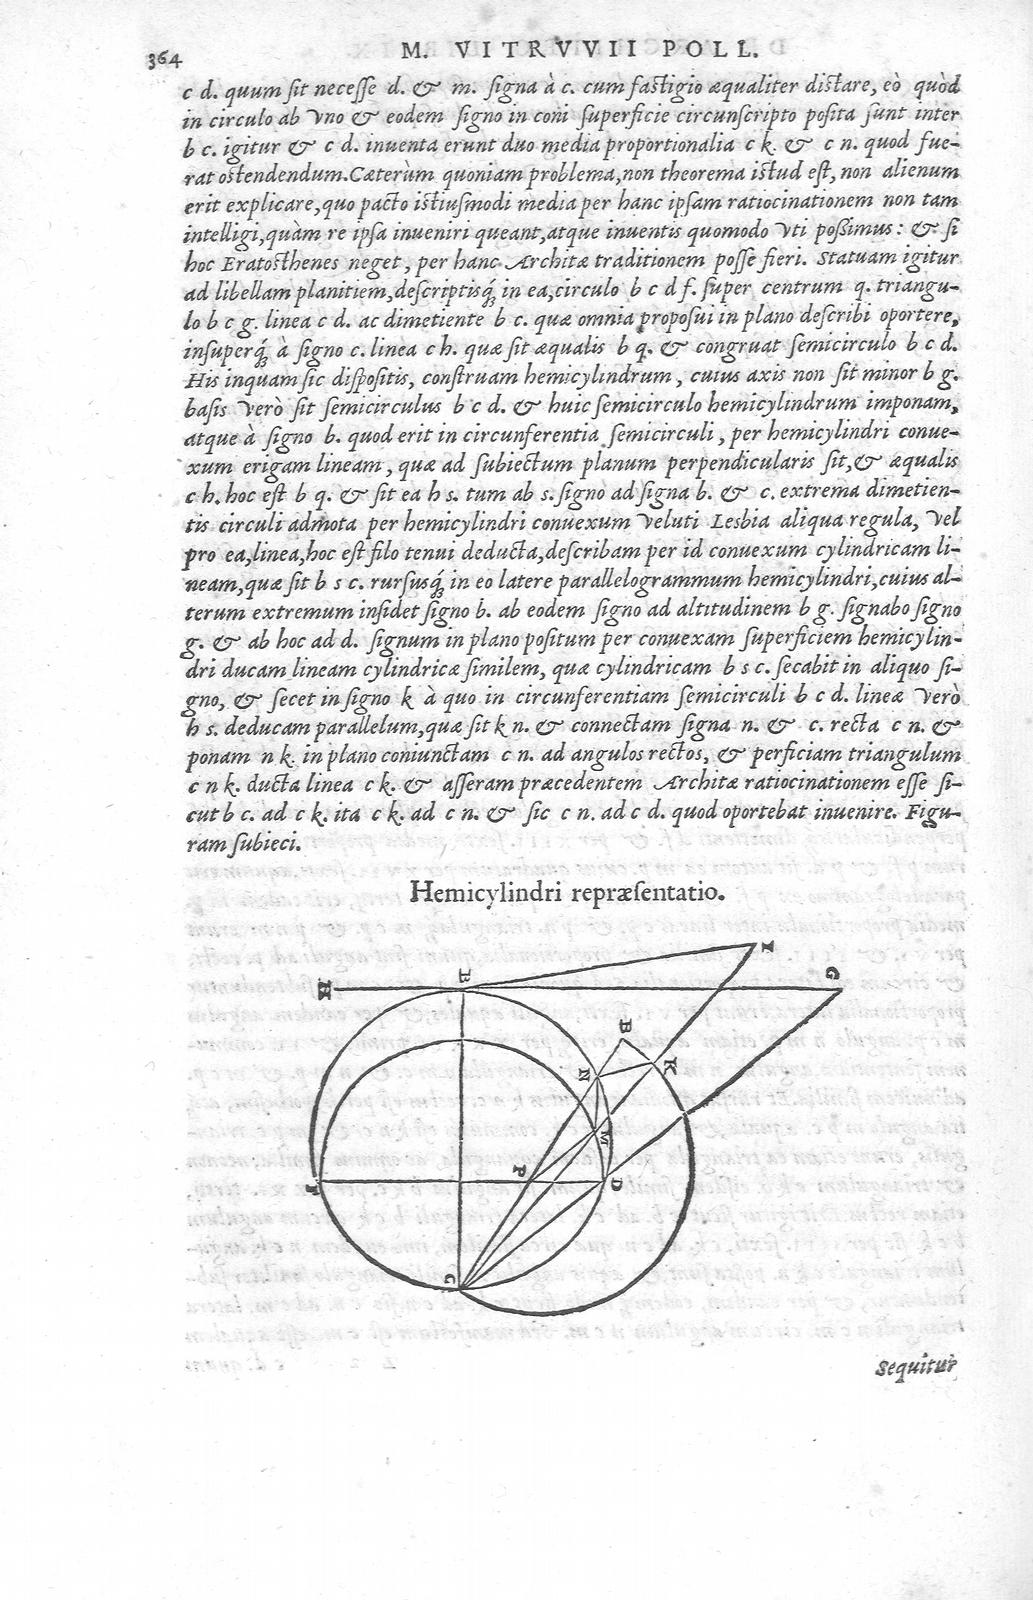 364 M. VITRVVII POLL.
c d. quum sit necesse d. & m. signa à c. cum fastigio æqualiter distare, eò quòd
in circulo ab vno & eodem signo in coni superficie circunscripto posita sunt inter
b c. igitur & c d. inuenta erunt duo media proportionalia c k. & c n. quod fue-
rat ostendendum. Cæterùm quoniam problema, non theorema istud est, non alienum
erit explicare, quo pacto istiusmodi media per hanc ipsam ratiocinationem non tam
intelligi, quàm re ipsa inueniri queant, atque inuentis quomodo vti poßimus: & si
hoc Eratosthenes neget, per hanc Architæ traditionem posse fieri. Statuam igitur
ad libellam planitiem, descriptisq́; in ea, circulo b c d f. super centrum q. triangu-
lo b c g. linea c d. ac dimetiente b c. quæ omnia proposui in plano describi oportere,
insuperq́; à signo c. linea c h. quæ sit æqualis b q. & congruat semicirculo b c d.
His inquam sic dispositis, construam hemicylindrum, cuius axis non sit minor b g.
basis verò sit semicirculus b c d. & huic semicirculo hemicylindrum imponam,
atque à signo b. quod erit in circunferentia semicirculi, per hemicylindri conue-
xum erigam lineam, quæ ad subiectum planum perpendicularis sit, & æqualis
c h. hoc est b q. & sit ea h s. tum ab s. signo ad signa b. & c. extrema dimetien-
tis circuli admota per hemicylindri conuexum veluti Lesbia aliqua regula, vel
pro ea, linea, hoc est filo tenui deducta, describam per id conuexum cylindricam li-
neam, quæ sit b s c. rursusq́; in eo latere parallelogrammum hemicylindri, cuius al-
terum extremum insidet signo b. ab eodem signo ad altitudinem b g. signabo signo
g. & ab hoc ad d. signum in plano positum per conuexam superficiem hemicylin-
dri ducam lineam cylindricæ similem, quæ cylindricam b s c. secabit in aliquo si-
gno, & secet in signo k à quo in circunferentiam semicirculi b c d. lineæ verò
h s. deducam parallelum, quæ sit k n. & connectam signa n. & c. recta c n. &
ponam n k. in plano coniunctam c n. ad angulos rectos, & perficiam triangulum
c n k. ducta linea c k. & asseram præcedentem Architæ ratiocinationem esse si-
cut b c. ad c k. ita c k. ad c n. & sic c n. ad c d. quod oportebat inuenire. Figu-
ram subieci.
Hemicylindri repræsentatio.
I
G
B
H
B
K
N
M
P
D
F
C
Sequitur